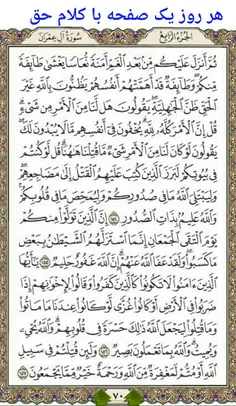 هر روز یک صفحه با کلام حق
الجزء الرابع
سورة آل عمران
ثُمَّ أَنزَلَ عَلَيْكُم مِّنۢ بَعْدِ ٱلْغَمِّ أَمَنَةً نُّعَاسًا يَغْشَىٰ طَآئِفَةً
مِّنكُمْ ۖ وَطَآئِفَةٌ قَدْ أَهَمَّتْهُمْ أَنفُسُهُمْ يَظُنُّونَ بِٱللَّهِ غَيْرَ
ٱلْحَقِّ ظَنَّ ٱلْجَٰهِلِيَّةِ ۖ يَقُولُونَ هَل لَّنَا مِنَ ٱلْأَمْرِ مِن شَىْءٍ ۗ
قُلْ إِنَّ ٱلْأَمْرَ كُلَّهُۥ لِلَّهِ ۗ يُخْفُونَ فِىٓ أَنفُسِهِم مَّا لَا يُبْدُونَ لَكَ ۖ
يَقُولُونَ لَوْ كَانَ لَنَا مِنَ ٱلْأَمْرِ شَىْءٌ مَّا قُتِلْنَا هَٰهُنَا ۗ قُل لَّوْ كُنتُمْ
فِى بُيُوتِكُمْ لَبَرَزَ ٱلَّذِينَ كُتِبَ عَلَيْهِمُ ٱلْقَتْلُ إِلَىٰ مَضَاجِعِهِمْ ۖ
وَلِيَبْتَلِىَ ٱللَّهُ مَا فِى صُدُورِكُمْ وَلِيُمَحِّصَ مَا فِى قُلُوبِكُمْ ۗ
وَٱللَّهُ عَلِيمٌۢ بِذَاتِ ٱلصُّدُورِ ١٥٤ إِنَّ ٱلَّذِينَ تَوَلَّوْا۟ مِنكُمْ
يَوْمَ ٱلْتَقَى ٱلْجَمْعَانِ إِنَّمَا ٱسْتَزَلَّهُمُ ٱلشَّيْطَٰنُ بِبَعْضِ
مَا كَسَبُوا۟ ۖ وَلَقَدْ عَفَا ٱللَّهُ عَنْهُمْ ۗ إِنَّ ٱللَّهَ غَفُورٌ حَلِيمٌ ١٥٥ يَٰٓأَيُّهَا
ٱلَّذِينَ ءَامَنُوا۟ لَا تَكُونُوا۟ كَٱلَّذِينَ كَفَرُوا۟ وَقَالُوا۟ لِإِخْوَٰنِهِمْ إِذَا
ضَرَبُوا۟ فِى ٱلْأَرْضِ أَوْ كَانُوا۟ غُزًّى لَّوْ كَانُوا۟ عِندَنَا مَا مَاتُوا۟
وَمَا قُتِلُوا۟ لِيَجْعَلَ ٱللَّهُ ذَٰلِكَ حَسْرَةً فِى قُلُوبِهِمْ ۗ وَٱللَّهُ يُحْىِۦ
وَيُمِيتُ ۗ وَٱللَّهُ بِمَا تَعْمَلُونَ بَصِيرٌ ١٥٦ وَلَئِن قُتِلْتُمْ فِى سَبِيلِ
ٱللَّهِ أَوْ مُتُّمْ لَمَغْفِرَةٌ مِّنَ ٱللَّهِ وَرَحْمَةٌ خَيْرٌ مِّمَّا يَجْمَعُونَ ١٥٧
٧٠